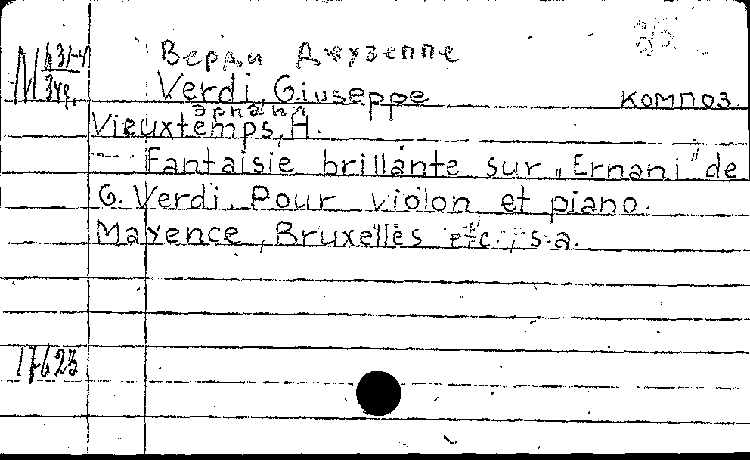 Верди Джузеппе
Verdi, Giuseppe
композ.
Эрнани
Vieuxtemps, H.
Fantaisie brillante sur „Ernani" de
G. Verdi. Pour violon et piano.
Mayence, Bruxelles etc., s.a.
17623